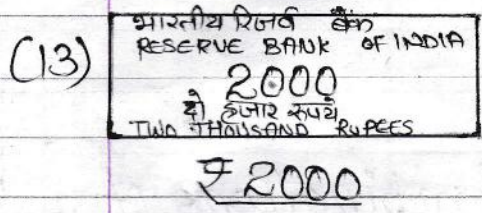 (13)
भारतीय रिजर्व बैंक
RESERVE BANK OF INDIA
2000
दो हजार रूपये
TWO THOUSAND RUPEES
₹ 2000